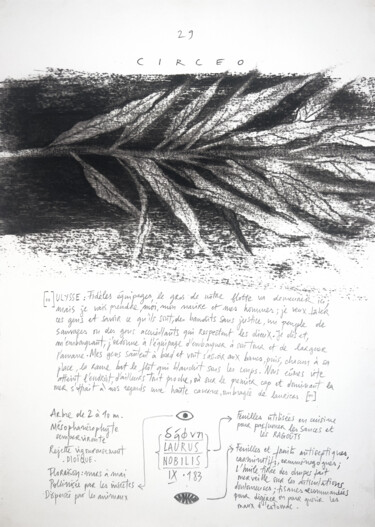 29
CIRCEO
[...] ULYSSE : Fidèles équipages, le gros de notre flotte va demeurer ici,
mais je vais prendre, moi, mon navire et mes hommes ; je veux tâter
ces gens et savoir ce qu'ils sont, des bandits sans justice, un peuple de
sauvages ou des gens accueillants qui respectent les dieux. Je dis et,
m'embarquant, j'ordonne à l'équipage d'embarquer à son tour et de larguer
l'amarre. Mes gens sautent à bord et vont s'asseoir aux bancs, puis, chacun à sa
place, la rame bat le flot qui blanchit sous les coups. Nous eûmes vite
atteint l'endroit, d'ailleurs tout proche, où sur le premier cap et dominant la
mer s'offrit à nos regards une haute caverne, ombragée de lauriers [...]
Arbre de 2 à 10 m.
Mésophanérophyte
Rejette vigoureusement
. DIOÏQUE.
Floraison : mars à mai
Pollinisée par les insectes
Dispersée par les animaux
LAURUS
NOBILIS
IX . 183
Feuilles utilisées en cuisine
pour parfumer les sauces et
les RAGOÛTS
Feuilles et fruits antiseptiques,
carminatifs, emménagogues ;
L'huile tirée des drupes fait
merveille sur les
douloureuses ; tisanes recommandées
pour digérer, ou pour guérir les
maux d'estomac.